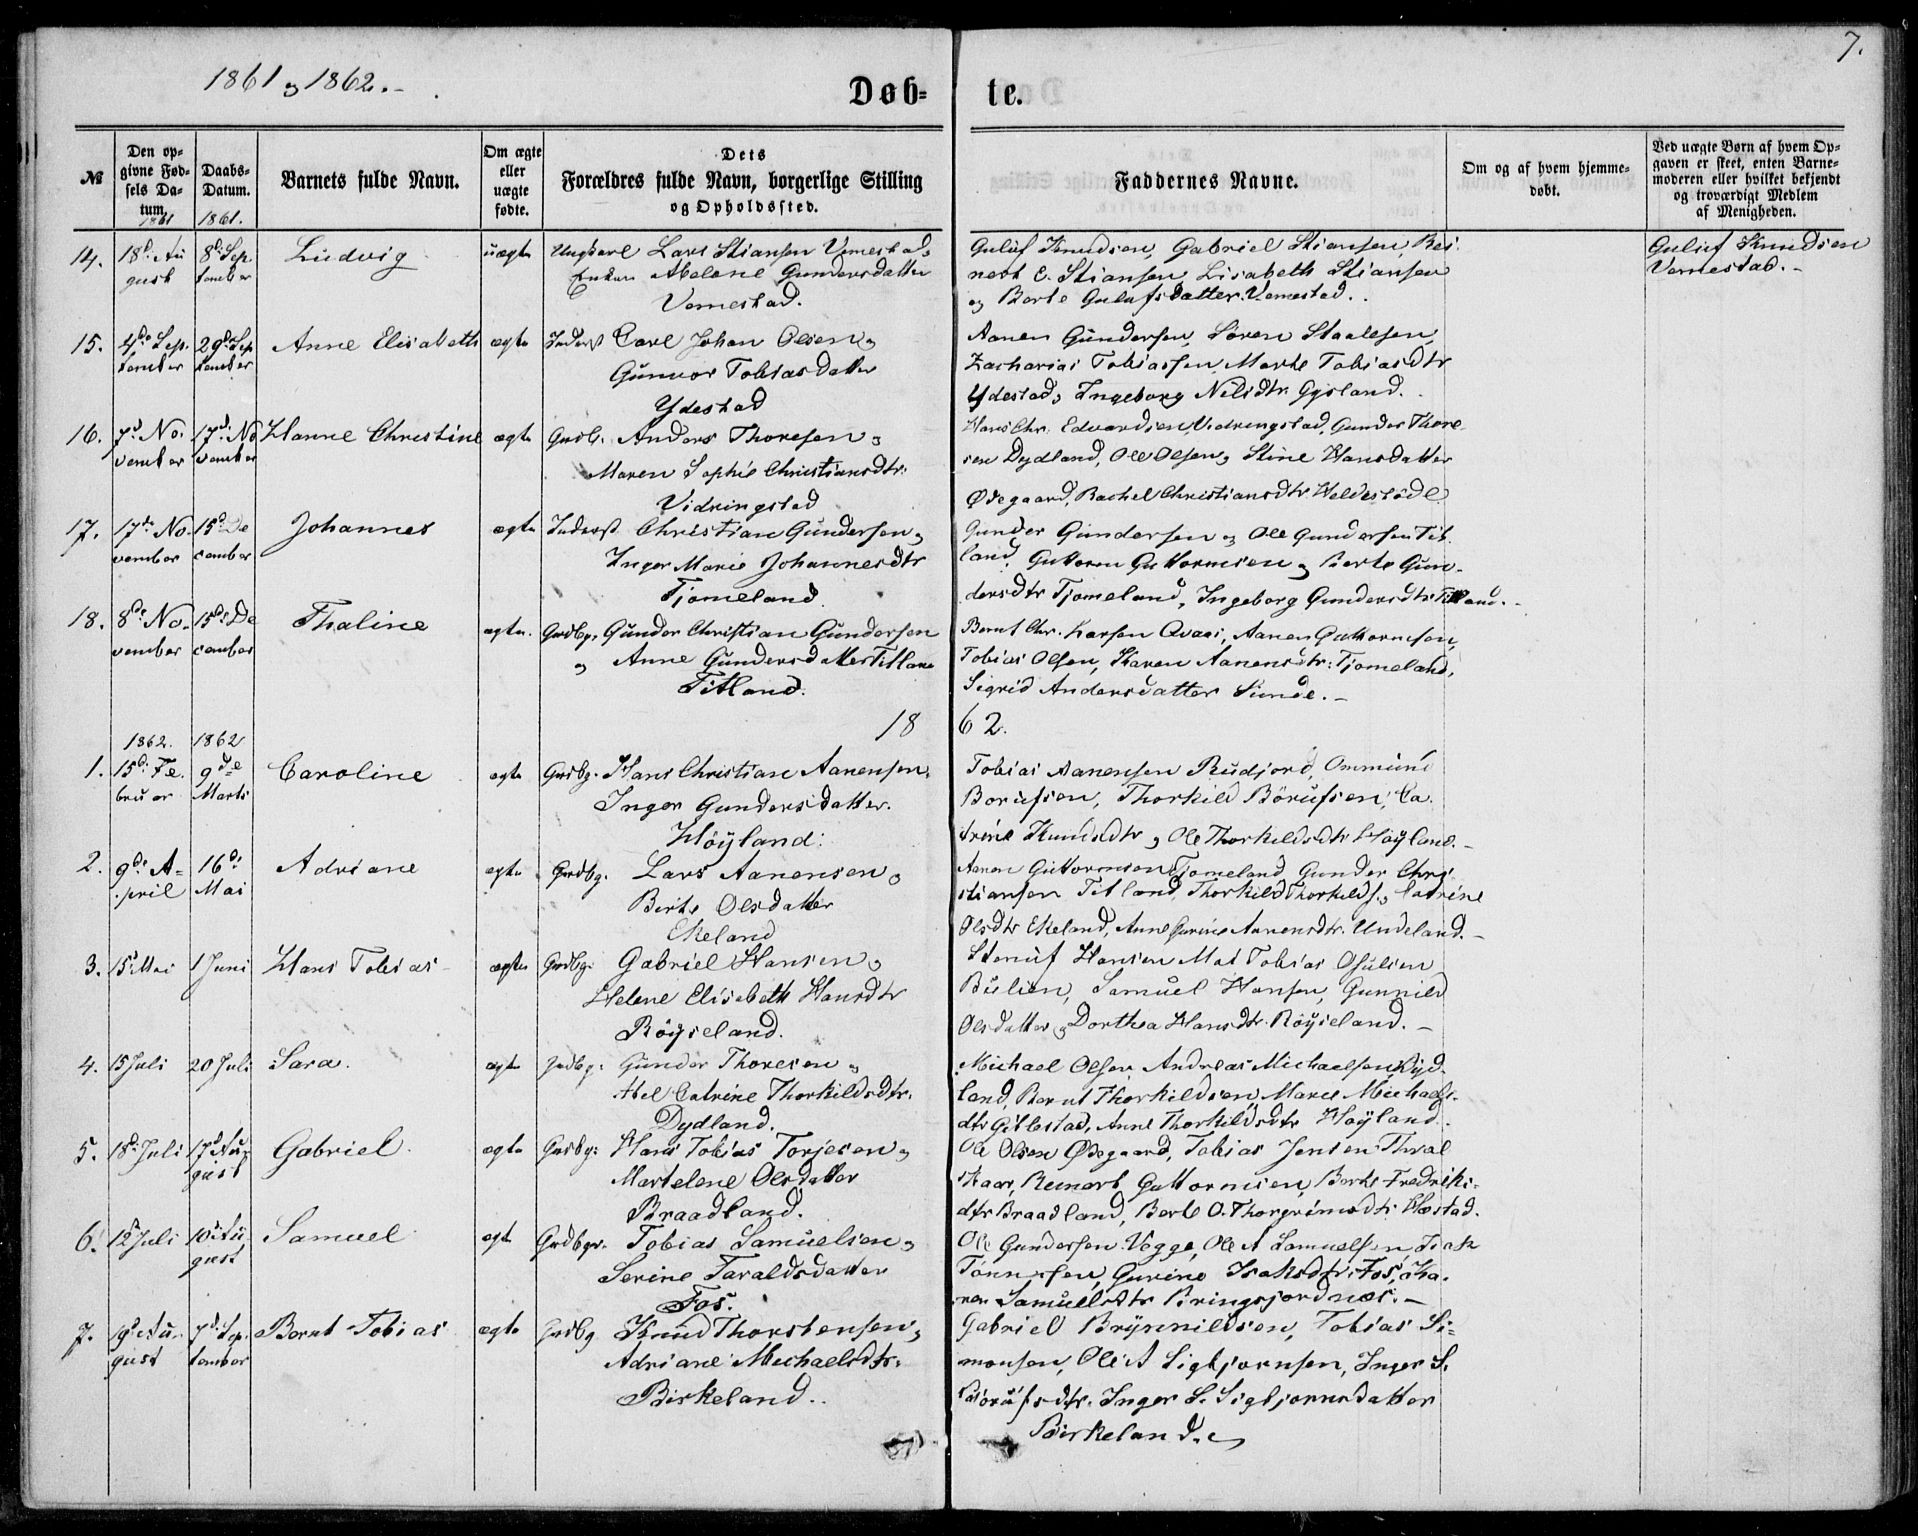 7.
1861 og 1862.
Døb- te.
№
Den opgivne Fødsels Datum.
1861
Daabs-Datum.
1861.
Barnets fulde Navn.
Om ægte eller uægte fødte.
Dets
Forældres fulde Navn, borgerlige Stilling
og Opholdssted.
Faddernes Navne.
Om og af hvem hjemmedøbt.
Ved uægte Børn af hvem Opgaven er skeet, enten Barnemoderen eller hvilket bekjendt og troværdigt Medlem af Menigheden.
14. 18de Au 8de Sep Ludvig uægte Ungkarl Lars Stiansen Vemestad
gust tember Enken Abelone Gundersdatter
Vemestad.
Guluf Knudsen, Gabriel Stiansen, Rei
nert C. Stiansen Lisabeth Stiansen
og Berte Gulufsdatter Vemestad.
Guluf Knudsen
Vemestad.
15. 4de Sep. 29de Sep Anne Elisabeth ægte Inderst Carl Johan Olsen og
tember tember Gunvor Tobiasdatter
Ydestad
Aanen Gundersen, Søren Staalesen,
Zacharias Tobiassen, Marte Tobiasdtr
Ydestad, Ingeborg Nilsdtr Gysland.
16. 7de No 17de No Hanne Christine ægte Grdb. Anders Thoresen og
vember vember Maren Sophie Christiansdtr.
Vidringstad
Hans Chr. Edvardsen, Vidringstad, Gunder Thore
sen Dydland, Ole Olsen og Stine Hansdatter
Ødegaard, Rachel Christiansdtr
17. 17de No 15de De Johannes ægte Inderst Christian Gundersen og
vember cember Inger Marie Johannesdtr
Tjomeland
Gunder Gundersen og Ole Gundersen Tit
land, Guttorm Guttormsen og Berte Gun
dersdtr Tjomeland, Ingeborg Gundersdtr Titland.
18. 8de No 15de De Thaline ægte. Grdbg. Gunder Christian Gundersen
vember cember og Anne Gundersdatter Titland
Titland.
Bernt Chr. Larsen Qvaas, Aanen Guttormsen,
Tobias Olsen, Karen Aanensdtr: Tjomeland,
Sigrid Andersdatter Sunde.
18 62.
1862. 1862
1. 15de Fe 9de Caroline ægte Grdbg. Hans Christian Aanensen,
bruar Marts Inger Gundersdatter.
Høyland.
Tobias Aanensen Rudjord, Ommund
Borufsen, Thorkild Børufsen, Ca
trine Knudsdtr og Ole Thorkildsdtr Høyland.
2. 9de A= 16de Adriane ægte Grdbg. Lars Aanensen og
pril Mai Berte Olsdatter
Ekeland
Aanen Guttormsen Tjomeland Gunder Chri
stiansen Titland, Thorkild Thorkilds. og Catrine
Olsdtr Ekeland, Anne Gurine Aanensdtr. Undeland.
3. 15 Mai 1 Juni Hans Tobias ægte Grdbg. Gabriel Hansen og
Helene Elisabeth Hansdtr
Røyseland.
Hansen Tobias
Samuel Hansen, Gunnild
Olsdatter og Dorthea Hansdtr. Røyseland.
4. 15 Juli 20 Juli Sara. ægte Grdbg. Gunder Thoresen og
Abel Catrine Thorkildsdtr.
Dydland.
Michael Olsen, Andreas Michaelsen, Dyd
land, Bernt Thorkildsen, Maren Michaels
dtr Gitlestad, Anne Thorkildsdtr Høyland.
5. 18de Juli 17de Au Gabriel ægte Grdbg: Hans Tobias Torjesen og
gust Martelene Olsdatter
Braadland.
Ole Olsen Ødegaard, Tobias Jensen
Reinert Guttormsen, Berte Fredriks
dtr Braadland, Berte O. Thorgrimsdtr Hæstad.
6. 12 Juli 10de Au Samuel ægt. Grdbgr. Tobias Samuelsen og
gust Serine Taraldsdatter
Fos.
Ole Gundersen Vegge, Ole A Samuelsen, Isak
Tønnesen, Gurine Isaksdtr: Fos, Ka
ren Samuelsdtr Bringsjordnes.
7. 19de Au 7de Sep Bernt Tobias ægte Grdbg. Knud Thorstensen og
gust tember Adriane Michaelsdtr.
Birkeland.
Gabriel Brynnildsen, Tobias Si=
monsen, Ole A Sigbjørnsen, Inger S.
Børufsdtr. Inger S. Sigbjørnsdatter
Birkeland.